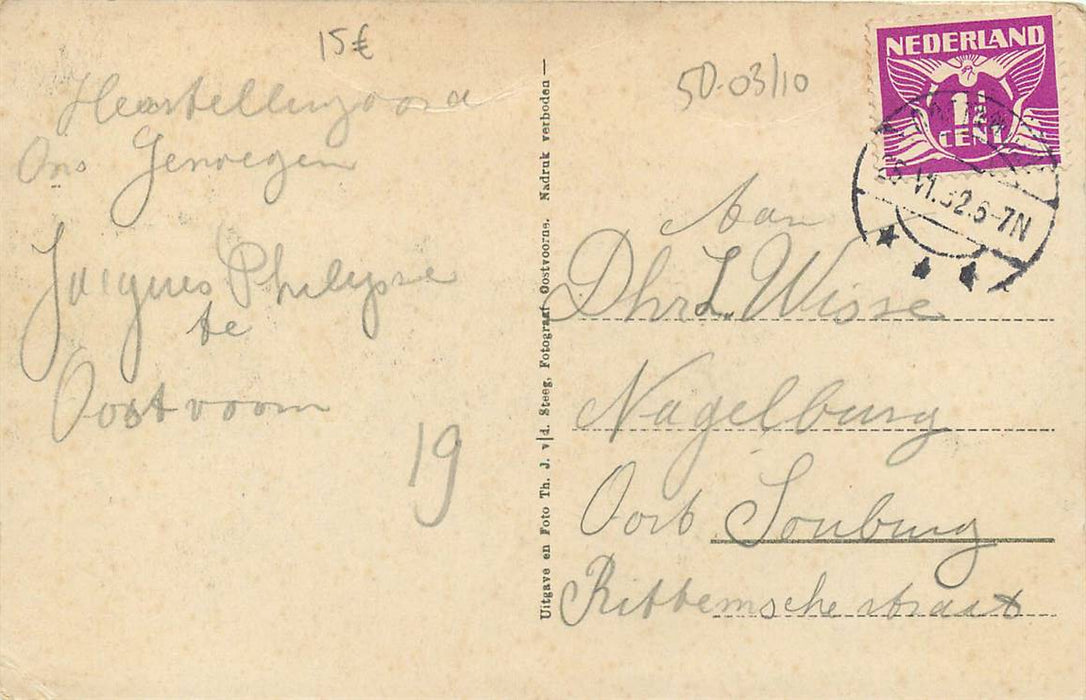 15€
50.03/10
Herstellingsoord
Ons Genoegen
Jacques Philipse
te
Oostvoorn
19
Uitgave en Foto Th. J. v/d. Steeg, Fotograaf Oostvoorne. Nadruk verboden —
NEDERLAND
1½
CENT
VI.32.6-7N
Aan
Dhr L. Wisse
Nagelburg
Oost Souburg
Rittemsche straat